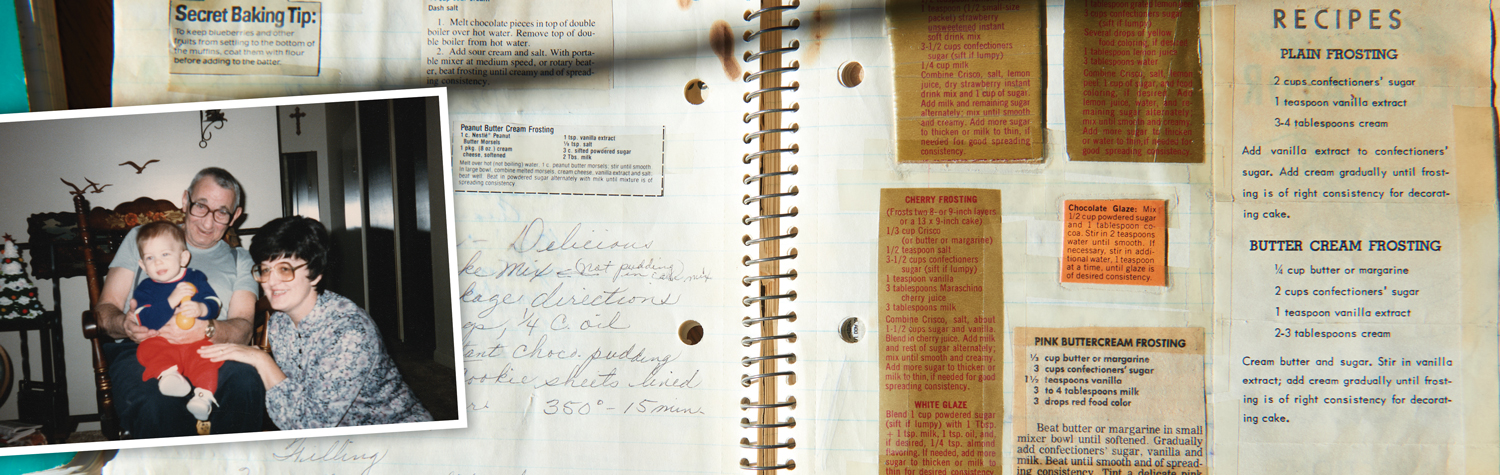 Secret Baking Tip:
To keep blueberries and other
fruits from settling to the bottom of
the muffins, coat them with flour
before adding to the batter.
Dash salt
1. Melt chocolate pieces in top of double
boiler over hot water. Remove top of dou-
ble boiler from hot water.
2. Add sour cream and salt. With porta-
ble mixer at medium speed, or rotary beat-
er, beat frosting until creamy and of spread-
ing consistency.
Peanut Butter Cream Frosting
1 c. Nestlé® Peanut
Butter Morsels
1 pkg. (8 oz.) cream
cheese, softened
1 tsp. vanilla extract
⅛ tsp. salt
3 c. sifted powdered sugar
2 Tbs. milk
Melt over hot (not boiling) water, 1 c. peanut butter morsels; stir until smooth
in large bowl, combine melted morsels, cream cheese, vanilla extract and salt;
beat well. Beat in powdered sugar alternately with milk until mixture is of
spreading consistency.
Delicious
ke mix (not pudding
in cake mix
kage directions
1/4 C. oil
tant choc. pudding
ookie sheets lined
350° - 15 min.
Filling
1 teaspoon (1/2 small-size
packet) strawberry
unsweetened instant
soft drink mix
3-1/2 cups confectioners
sugar (sift if lumpy)
1/4 cup milk
Combine Crisco, salt, lemon
juice, dry strawberry instant
drink mix and 1 cup of sugar.
Add milk and remaining sugar
alternately; mix until smooth
and creamy. Add more sugar
to thicken or milk to thin, if
needed for good spreading
consistency.
1 tablespoon grated lemon peel
3 cups confectioners sugar
(sift if lumpy)
Several drops of yellow
food coloring, if desired
1 tablespoon lemon juice
3 tablespoons water
Combine Crisco, salt, lemon
peel, 1 cup of sugar, and food
coloring, if desired. Add
lemon juice, water, and re-
maining sugar alternately;
mix until smooth and creamy.
Add more sugar to thicken
or water to thin, if needed for
good spreading consistency.
CHERRY FROSTING
(Frosts two 8- or 9-inch layers
or a 13 x 9-inch cake)
1/3 cup Crisco
(or butter or margarine)
1/2 teaspoon salt
3-1/2 cups confectioners
sugar (sift if lumpy)
1 teaspoon vanilla
3 tablespoons Maraschino
cherry juice
3 tablespoons milk
Combine Crisco, salt, about
1-1/2 cups sugar and vanilla.
Blend in cherry juice. Add milk
and rest of sugar alternately;
mix until smooth and creamy.
Add more sugar to thicken or
milk to thin, if needed for good
spreading consistency.
WHITE GLAZE
Blend 1 cup powdered sugar
(sift if lumpy) with 1 Tbsp.
+ 1 tsp. milk, 1 tsp. oil, and,
if desired, 1/4 tsp. almond
flavoring. If needed, add more
sugar to thicken or milk to
thin for desired consistency.
Chocolate Glaze: Mix
1/2 cup powdered sugar
and 1 tablespoon co-
coa. Stir in 2 teaspoons
water until smooth. If
necessary, stir in addi-
tional water, 1 teaspoon
at a time, until glaze is
of desired consistency.
PINK BUTTERCREAM FROSTING
⅓ cup butter or margarine
3 cups confectioners' sugar
1½ teaspoons vanilla
3 to 4 tablespoons milk
3 drops red food color
Beat butter or margarine in small
mixer bowl until softened. Gradually
add confectioners' sugar, vanilla and
milk. Beat until smooth and of spread-
ing consistency. Tint a delicate pink
RECIPES
PLAIN FROSTING
2 cups confectioners' sugar
1 teaspoon vanilla extract
3-4 tablespoons cream
Add vanilla extract to confectioners'
sugar. Add cream gradually until frost-
ing is of right consistency for decorat-
ing cake.
BUTTER CREAM FROSTING
¼ cup butter or margarine
2 cups confectioners' sugar
1 teaspoon vanilla extract
2-3 tablespoons cream
Cream butter and sugar. Stir in vanilla
extract; add cream gradually until frost-
ing is of right consistency for decorat-
ing cake.